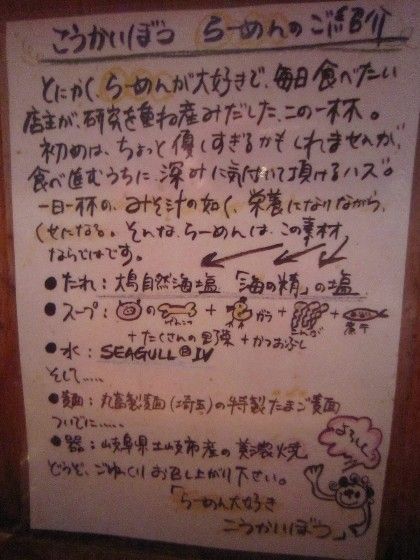 こうかいぼう らーめんのご紹介
とにかく、らーめんが大好きで、毎日食べたい
店主が、研究を重ね産みだした、この一杯。
初めは、ちょっと優しすぎるかもしれませんが、
食べ進むうちに、深みに気付いて頂けるハズ。
一日一杯の、みそ汁の如く、栄養になりながら、
くせになる。そんな、らーめんは、この素材
ならではです。
●たれ：大島自然海塩「海の精」の塩
●スープ：の げんこつ + ガラ + + 煮干
+たくさんの野菜+かつおぶし
●水：SEAGULL Ⅳ
そして.....
●麺：丸富製麺(埼玉)の特製たまご麺
ついでに.....
●器：岐阜県土岐市産の美濃焼
どうぞ、ごゆっくりお召し上がり下さい。
「らーめん大好き
こうかいぼう」